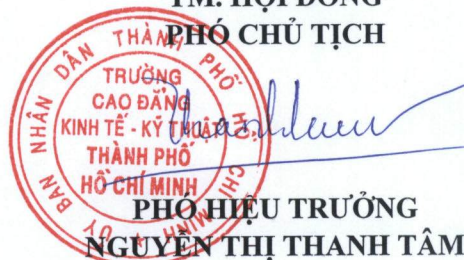 TM. HỘI ĐỒNG
PHÓ CHỦ TỊCH
ỦY BAN NHÂN DÂN THÀNH PHỐ HỒ CHÍ MINH
TRƯỜNG
CAO ĐẲNG
KINH TẾ - KỸ THUẬT
THÀNH PHỐ
HỒ CHÍ MINH
PHÓ HIỆU TRƯỞNG
NGUYỄN THỊ THANH TÂM